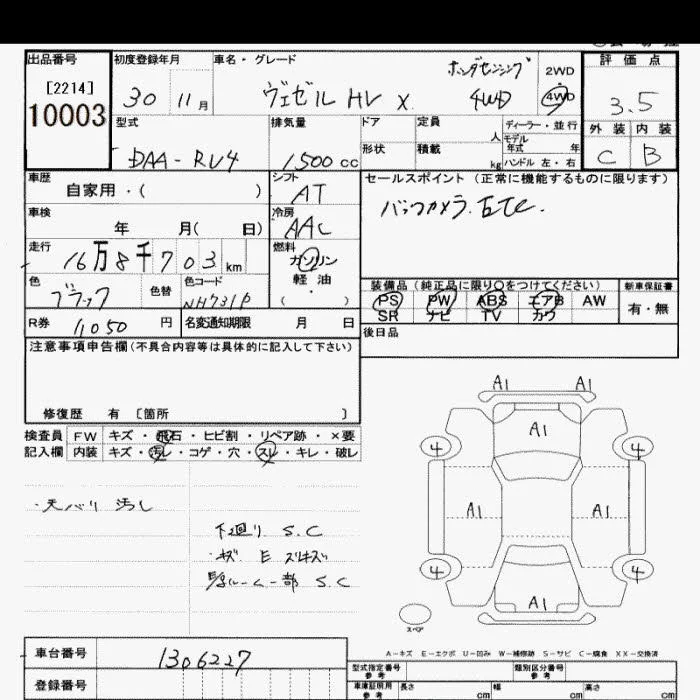 出品番号 初度登録年月 車名・グレード ホンダセンシング 2WD 評価点
[2214] 30 11月 ヴェゼル HV X 4WD 4WD 3.5
10003 型式 排気量 ドア 定員 人 ディーラー・並行 外装 内装
DAA-RU4 1500cc 形状 積載 kg モデル年式 年 ハンドル 左・右 C B
車歴 シフト セールスポイント (正常に機能するものに限ります)
自家用・( ) AT バックカメラ.Etc.
車検 冷房
年 月( 日) AAC
走行 燃料
16万8千703km ガソリン
軽油
色 色替 色コード ・( ) 装備品(純正品に限り〇をつけてください) 新車保証書
ブラック NH731P PS PW ABS エアB AW 有・無
SR ナビ TV カワ
R券 11050円 名変通知期限 月 日 後日品
注意事項申告欄(不具合内容等は具体的に記入して下さい)
修復歴 有 〔箇所 〕
検査員 FW キズ・飛石・ヒビ割・リペア跡・×要
記入欄 内装 キズ・汚レ・コゲ・穴・スレ・キレ・破レ
・天バリ 汚レ
下廻り S.C
E スリキズ
一部 S.C
A1 A1
A1
4 4
A1 A1
4 4
A1
スペア
A-キズ E-エクボ U-凹み W-補修跡 S-サビ C-腐食 XX-交換済
車台番号 1306227
型式指定番号 参考 類別区分番号 参考
登録番号 車庫証明用 参考 長さ cm 幅 cm 高さ cm